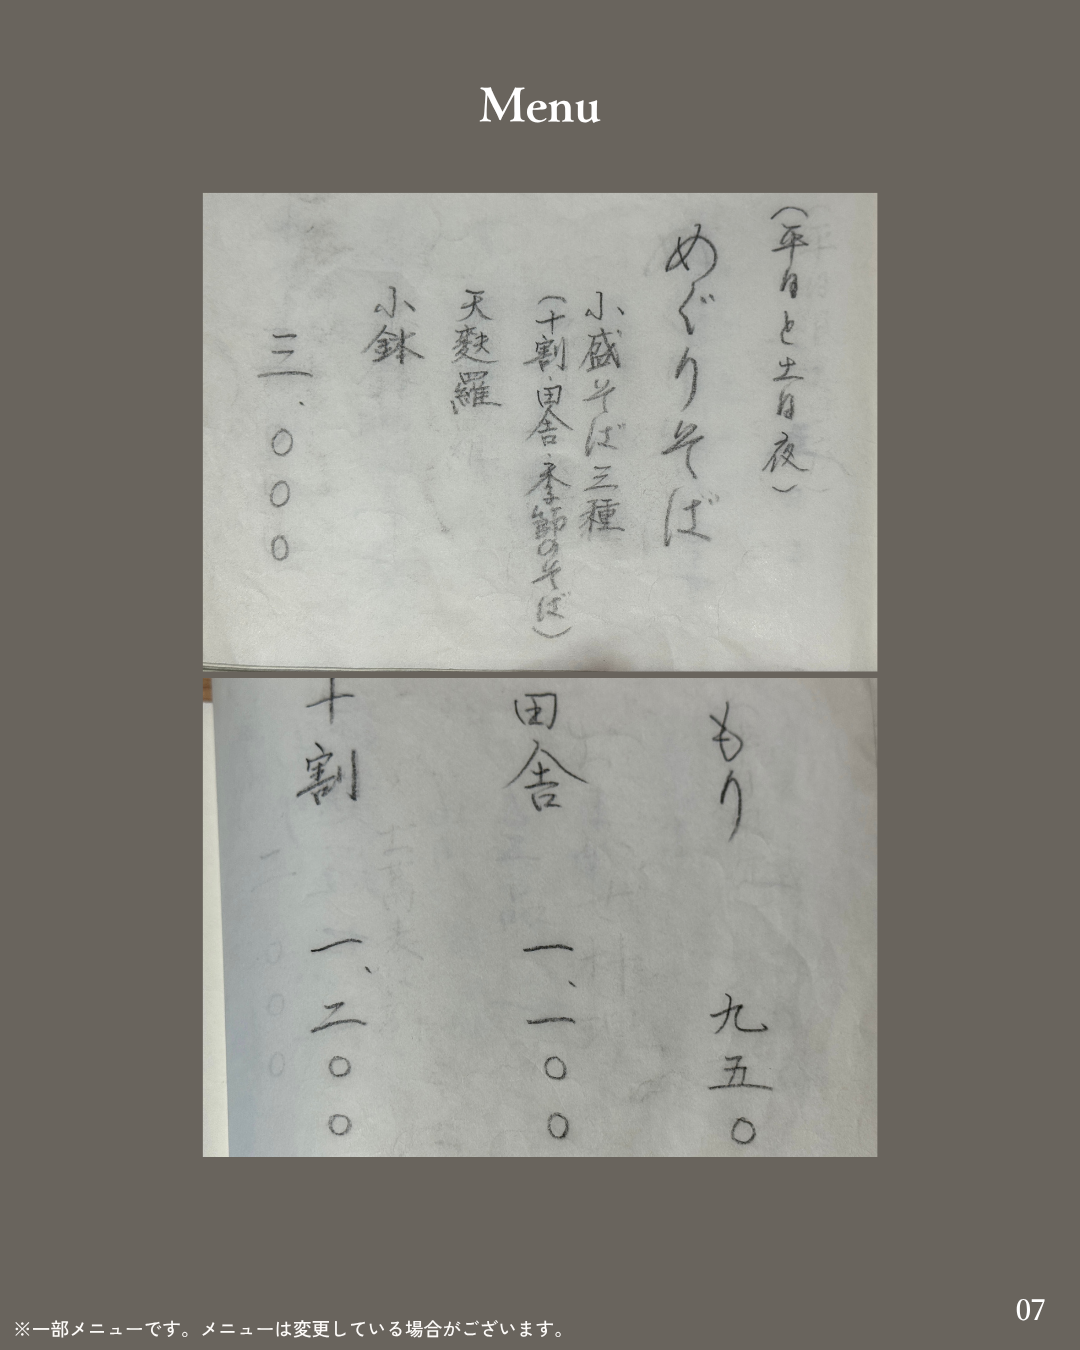 Menu
（平日と土日夜）
めぐりそば
小盛そば三種
（十割・田舎・季節のそば）
天麩羅
小鉢
三、〇〇〇
もり
九五〇
田舎
一、一〇〇
十割
一、二〇〇
※一部メニューです。メニューは変更している場合がございます。
07